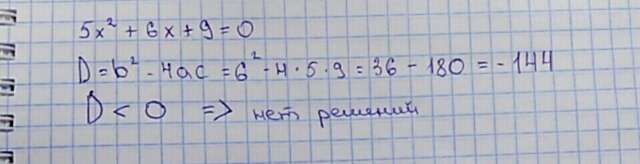 5x² + 6x + 9 = 0
D = b² - 4ac = 6² - 4 · 5 · 9 = 36 - 180 = - 144
D < 0 => нет решений